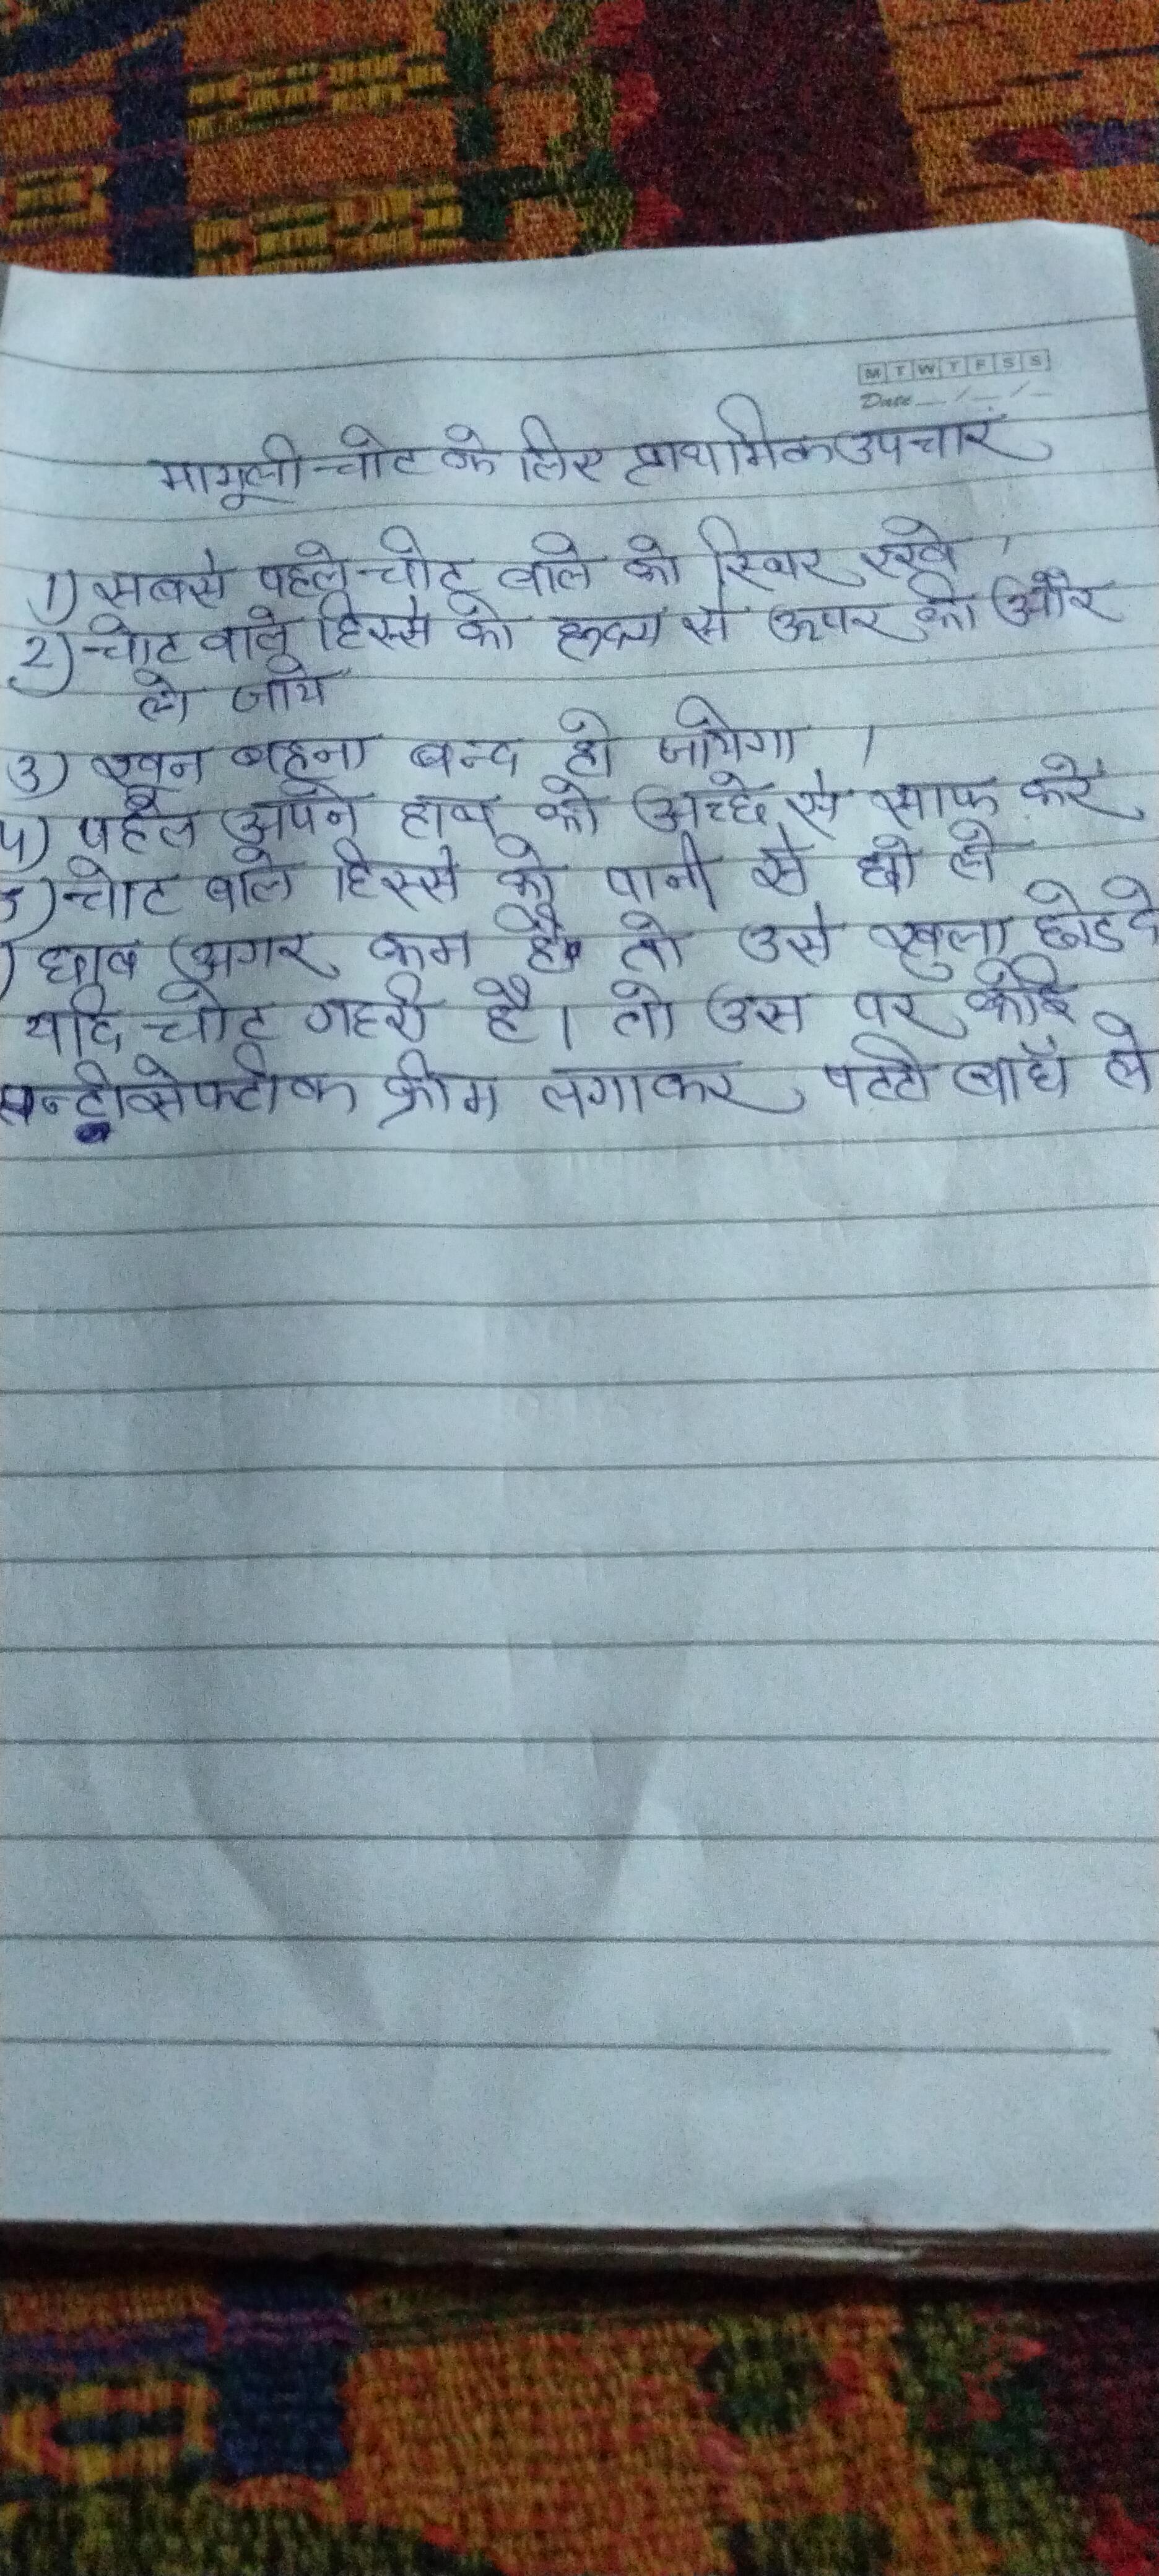 M T W T F S S
Date __/__/__
मामूली चोट के लिए प्राथमिक उपचार
1) सबसे पहले चोट वाले को स्थिर रखे ।
2) चोट वाले हिस्से को हृदय से ऊपर की और
ले जाये
3) खून बहना बन्द हो जायेगा ।
4) पहले अपने हाथ को अच्छे से साफ करें
5) चोट वाले हिस्से को पानी से धो ले
) घाव अगर कम है तो उसे खुला छोड दे
यदि चोट गहरी है। तो उस पर कोई
एन्टीसेफ्टीक क्रीम लगाकर पटटी बाधँ ले